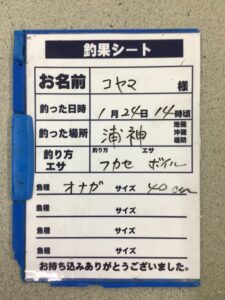 釣果シート
お名前 コヤマ 様
釣った日時 1月24日14時頃
釣った場所 浦神 地磯 沖磯 堤防
釣り方 エサ 釣り方 フカセ エサ ボイル
魚種 オナガ サイズ 40cm
魚種 サイズ
魚種 サイズ
魚種 サイズ
お持ち込みありがとうございました。